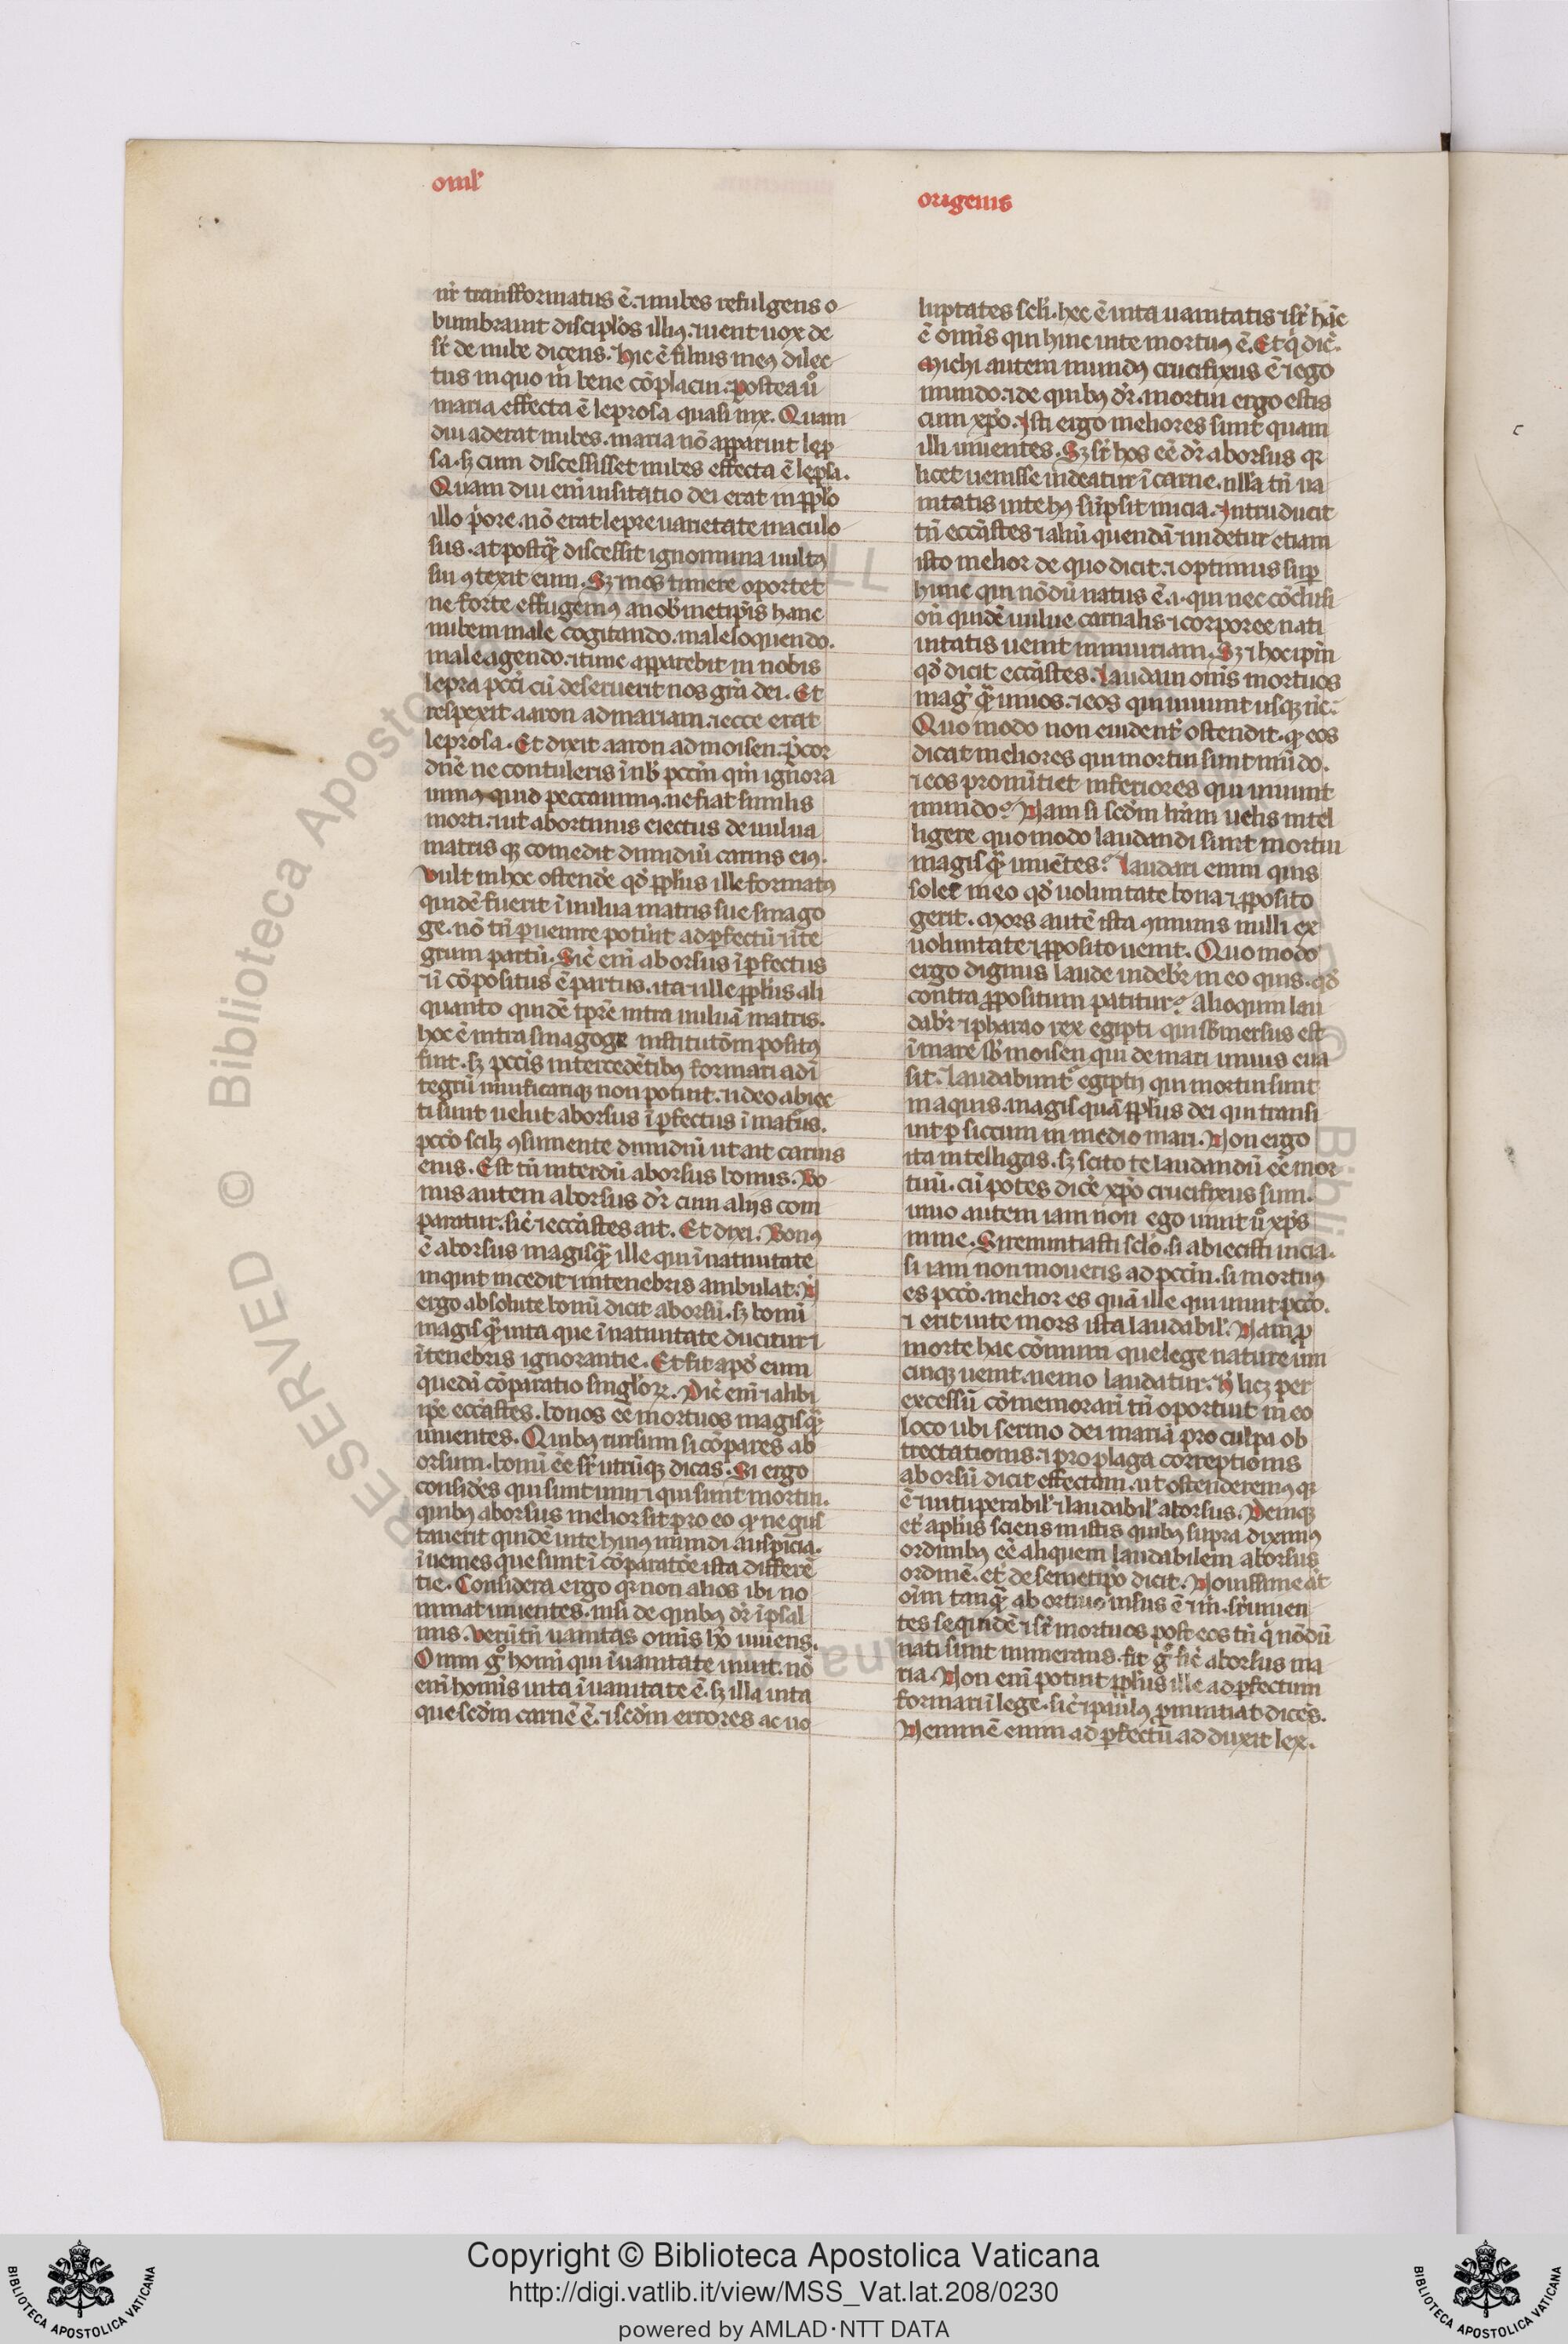 omł
nr̄ transformatus ē. ⁊ nubes refulgens o
bumbrauit discipłos illiꝰ. ⁊ uenit uox de
sr̄ de nube dicens. Hic ē filius meꝰ dilec
tus in quo m̄ bene cōplacui. postea uͦ
maria effecta ē leprosa quasi nix. Quam
diu aderat nubes. maria nō apparuit lep̱
sa. sꝫ cum discessisset nubes effecta ē lep̱sa.
Quam diu em̄ uisitatio dei erat in ꝑplo
illo p̄ore. nō erat lepre uarietate maculo
sus. at postq̄ꝫ discessit ignominia uultꝰ
sui ꝯtexit eum. Sꝫ ⁊ nos timere oportet
ne forte effugemꝰ a nob̄metip̄is hanc
nubem male cogitando. male loquendo.
male agendo. ⁊ tunc apparebit in nobis
lepra pcc̄i cū deseruerit nos gr̄a dei. Et
respexit aaron ad mariam. ⁊ ecce erat
leprosa. Et dixit aaron ad moisen. p̄cor
dn̄e ne contuleris ī nb̄ pccm̄ qm̄ ignora
uimꝰ quid peccauimꝰ. ne fiat similis
morti. ⁊ ut abortiuus eiectus de uulua
matris qꝫ comedit dimidiū carnis eiꝰ.
Vult in hoc ostendē qd̄ ꝑpłus ille formatꝰ
quidē fuerit ī uulua matris sue sinago
ge. nō tn̄ ꝑuenire potuit ad ꝑfectū ⁊ īte
grum partū. Sic̄ em̄ aborsus īꝑfectus
⁊ ī cōpositus ē partus. ita ⁊ ille ꝑpłus ali
quanto quidē tp̄re intra uuluā matris.
hoc ē intra sinagoge institutōm positꝰ
fuit. sꝫ pcc̄is intercedētibꝰ formari ad ī
tegrū uiuificariqꝫ non potuit. ⁊ ideo abiec
ti sunt uelut aborsus īꝑfectus ⁊ īmatꝰus.
pcc̄o scilꝫ ꝯsumente dimidiū ut ait carnis
eius. Est tn̄ interdū aborsus bonus. Bo
nus autem aborsus dr̄ cum alijs com
paratur. sic̄ ⁊ ecc̄astes ait. Et dixi. Bonꝰ
ē aborsus magisq̄ꝫ ille qui ī natiuitate
inquit incedit ⁊ in tenebris ambulat. N̄
ergo absolute bonū dicit aborsū. sꝫ bonū
magisq̄ꝫ uita que ī natiuitate ducitur ⁊
ī tenebris ignorantie. Et fit apd̄ eum
quedā cōparatio singłoꝝ. Dic̄ em̄ ⁊ alibi
ip̄e ecc̄astes. bonos eē mortuos magisq̄ꝫ
uiuentes. Quibꝰ rursum si cōpares ab
orsum. bonū eē sr̄ utrūqꝫ dicas. Si ergo
consideres qui sunt uiui ⁊ qui sunt mortui.
quibꝰ aborsus melior sit pro eo qꝫ ne gus
tauerit quidē uite huiꝰ mundi auspicia.
īuenies que sunt ī cōparatōe ista differē
tie. Considera ergo qꝛ non alios ibi no
minat uiuentes. nisi de quibꝰ dr̄ ī psal
mis. Verūtn̄ uanitas omīs hō uiuens.
Omni gͦ homī qui ī uanitate uiuit. nō
em̄ homīs uita ī uanitate ē. sꝫ illa uita
que sedm̄ carnē ē. ⁊ sedm̄ errores ac uo
origenis
luptates scłi. hec ē uita uanitatis ⁊ sr̄ hāc
ē omīs qui huic uite mortuꝰ ē. Et q̄ dic̄.
Michi autem mundꝰ crucifixus ē ⁊ ego
mundo. ⁊ de quibꝰ dr̄. mortui ergo estis
cum xp̄o. Isti ergo meliores sunt quam
illi uiuentes. Sꝫ sr̄ hos eē dr̄ aborsus qꝛ
licet uenisse uideatur ī carne. nlła tn̄ ua
nitatis uite hꝰ sūpsit inicia. Introducit
tn̄ ecc̄astes ⁊ aliū quendā ⁊ uidetur etiam
isto melior de quo dicit. ⁊ optimus suꝑ
hunc qui nōdū natus ē. .i. qui nec cōclusi
on̄ quidē uulue carnalis ⁊ corporee nati
uitatis uenit in iniuriam. Sꝫ ⁊ hoc ip̄m
qd̄ dicit ecc̄astes. Laudaui om̄s mortuos
maḡ q̄ꝫ uiuos. ⁊ eos qui uiuunt usqꝫ nc̄.
Quo modo non euident̄ ostendit. qꝫ eos
dicat meliores qui mortui sunt mūdo.
⁊ eos pronūtiet inferiores qui uiuunt
mundo? Nam si sedm̄ lr̄am uelis intel
ligere quo modo laudandi sunt mortui
magisq̄ꝫ uiuētes? Laudari enim quis
solet in eo qd̄ uoluntate bona ⁊ ꝓposito
gerit. Mors autē ista ꝯmunis nulli ex
uoluntate ⁊ ꝓposito uenit. Quo modo
ergo dignus laude uidebr̄ in eo quis. qd̄
contra ꝓpositum patitur? Alioquin lau
dabr̄ ⁊ pharao rex egipti qui sb̄mersus est
ī mare sb̄ moisen qui de mari uiuus eua
sit. Laudabunt̄ egiptij qui mortui sunt
in aquis. magis quā ꝑpłus dei qui transi
uit ꝑ siccum in medio mari. Non ergo
ita intelligas. sꝫ scito te laudandū eē mor
tuū. cū potes dicē xp̄o crucifixus sum.
uiuo autem iam non ego uiuit uͦ xp̄s
in me. Si renuntiasti scłō. si abiecisti uicia.
si iam non moueris ad pccm̄. si mortuꝰ
es pcc̄o. melior es quā ille qui uiuit pcc̄o.
⁊ erit in te mors ista laudabiĺ. Nam ꝓ
morte hac cōmuni que lege nature uni
cuiqꝫ uenit. nemo laudatur. H̄ licꝫ per
excessū cōmemorari tn̄ oportuit in eo
loco ubi sermo dei mariā pro culpa ob
trectationis. ⁊ pro plaga correptionis
aborsū dicit effectam. ut ostenderemꝰ qꝛ
ē ⁊ uituperabiĺ ⁊ laudabiĺ aborsus. Deniqꝫ
et apłus sciens in istis quibꝰ supra diximꝰ
ordinibꝰ eē aliquem laudabilem aborsus
ordinē. et de semetip̄o dicit. Nouissime āt
oīm tanq̄ꝫ abortiuo uisus ē ⁊ m̄. sr̄ uiuen
tes se quidē ⁊ sr̄ mortuos post eos tn̄ q̄ nōdū
nati sunt numerans. fit gͦ sic̄ aborsus ma
ria. Non em̄ potuit ꝑpłus ille ad ꝑfectum
formari ī lege. sic̄ ⁊ paulꝰ ꝓnutiat dicēs.
Neminē enim ad ꝑfectū adduxit lex.
Copyright © Biblioteca Apostolica Vaticana
http://digi.vatlib.it/view/MSS_Vat.lat.208/0230
powered by AMLAD·NTT DATA
BIBLIOTECA APOSTOLICA VATICANA
BIBLIOTECA APOSTOLICA VATICANA